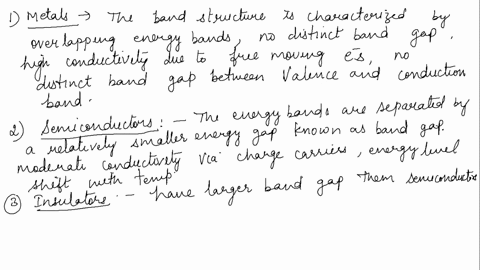 1) Metals → The band structure is characterized by
overlapping energy bands, no distinct band gap,
high conductively due to free moving e⁻s, no
distinct band gap between Valence and conduction
band.
2) Semiconductors :– The energy bands are separated by
a relatively smaller energy gap known as band gap.
moderate conductively via charge carriers, energy level
shift with temp
3) Insulators :– have larger band gap them semiconductors